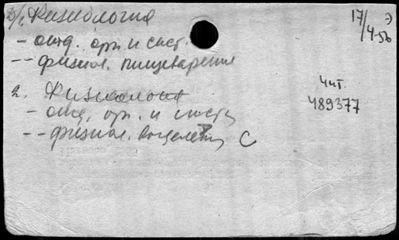 Физиология
17/4-56 Э
- отд. орг. и сист.
-- физиол. пищеварения
Чит.
489377
2. Физиология
- отд. орг. и сист.
-- физиол.
С